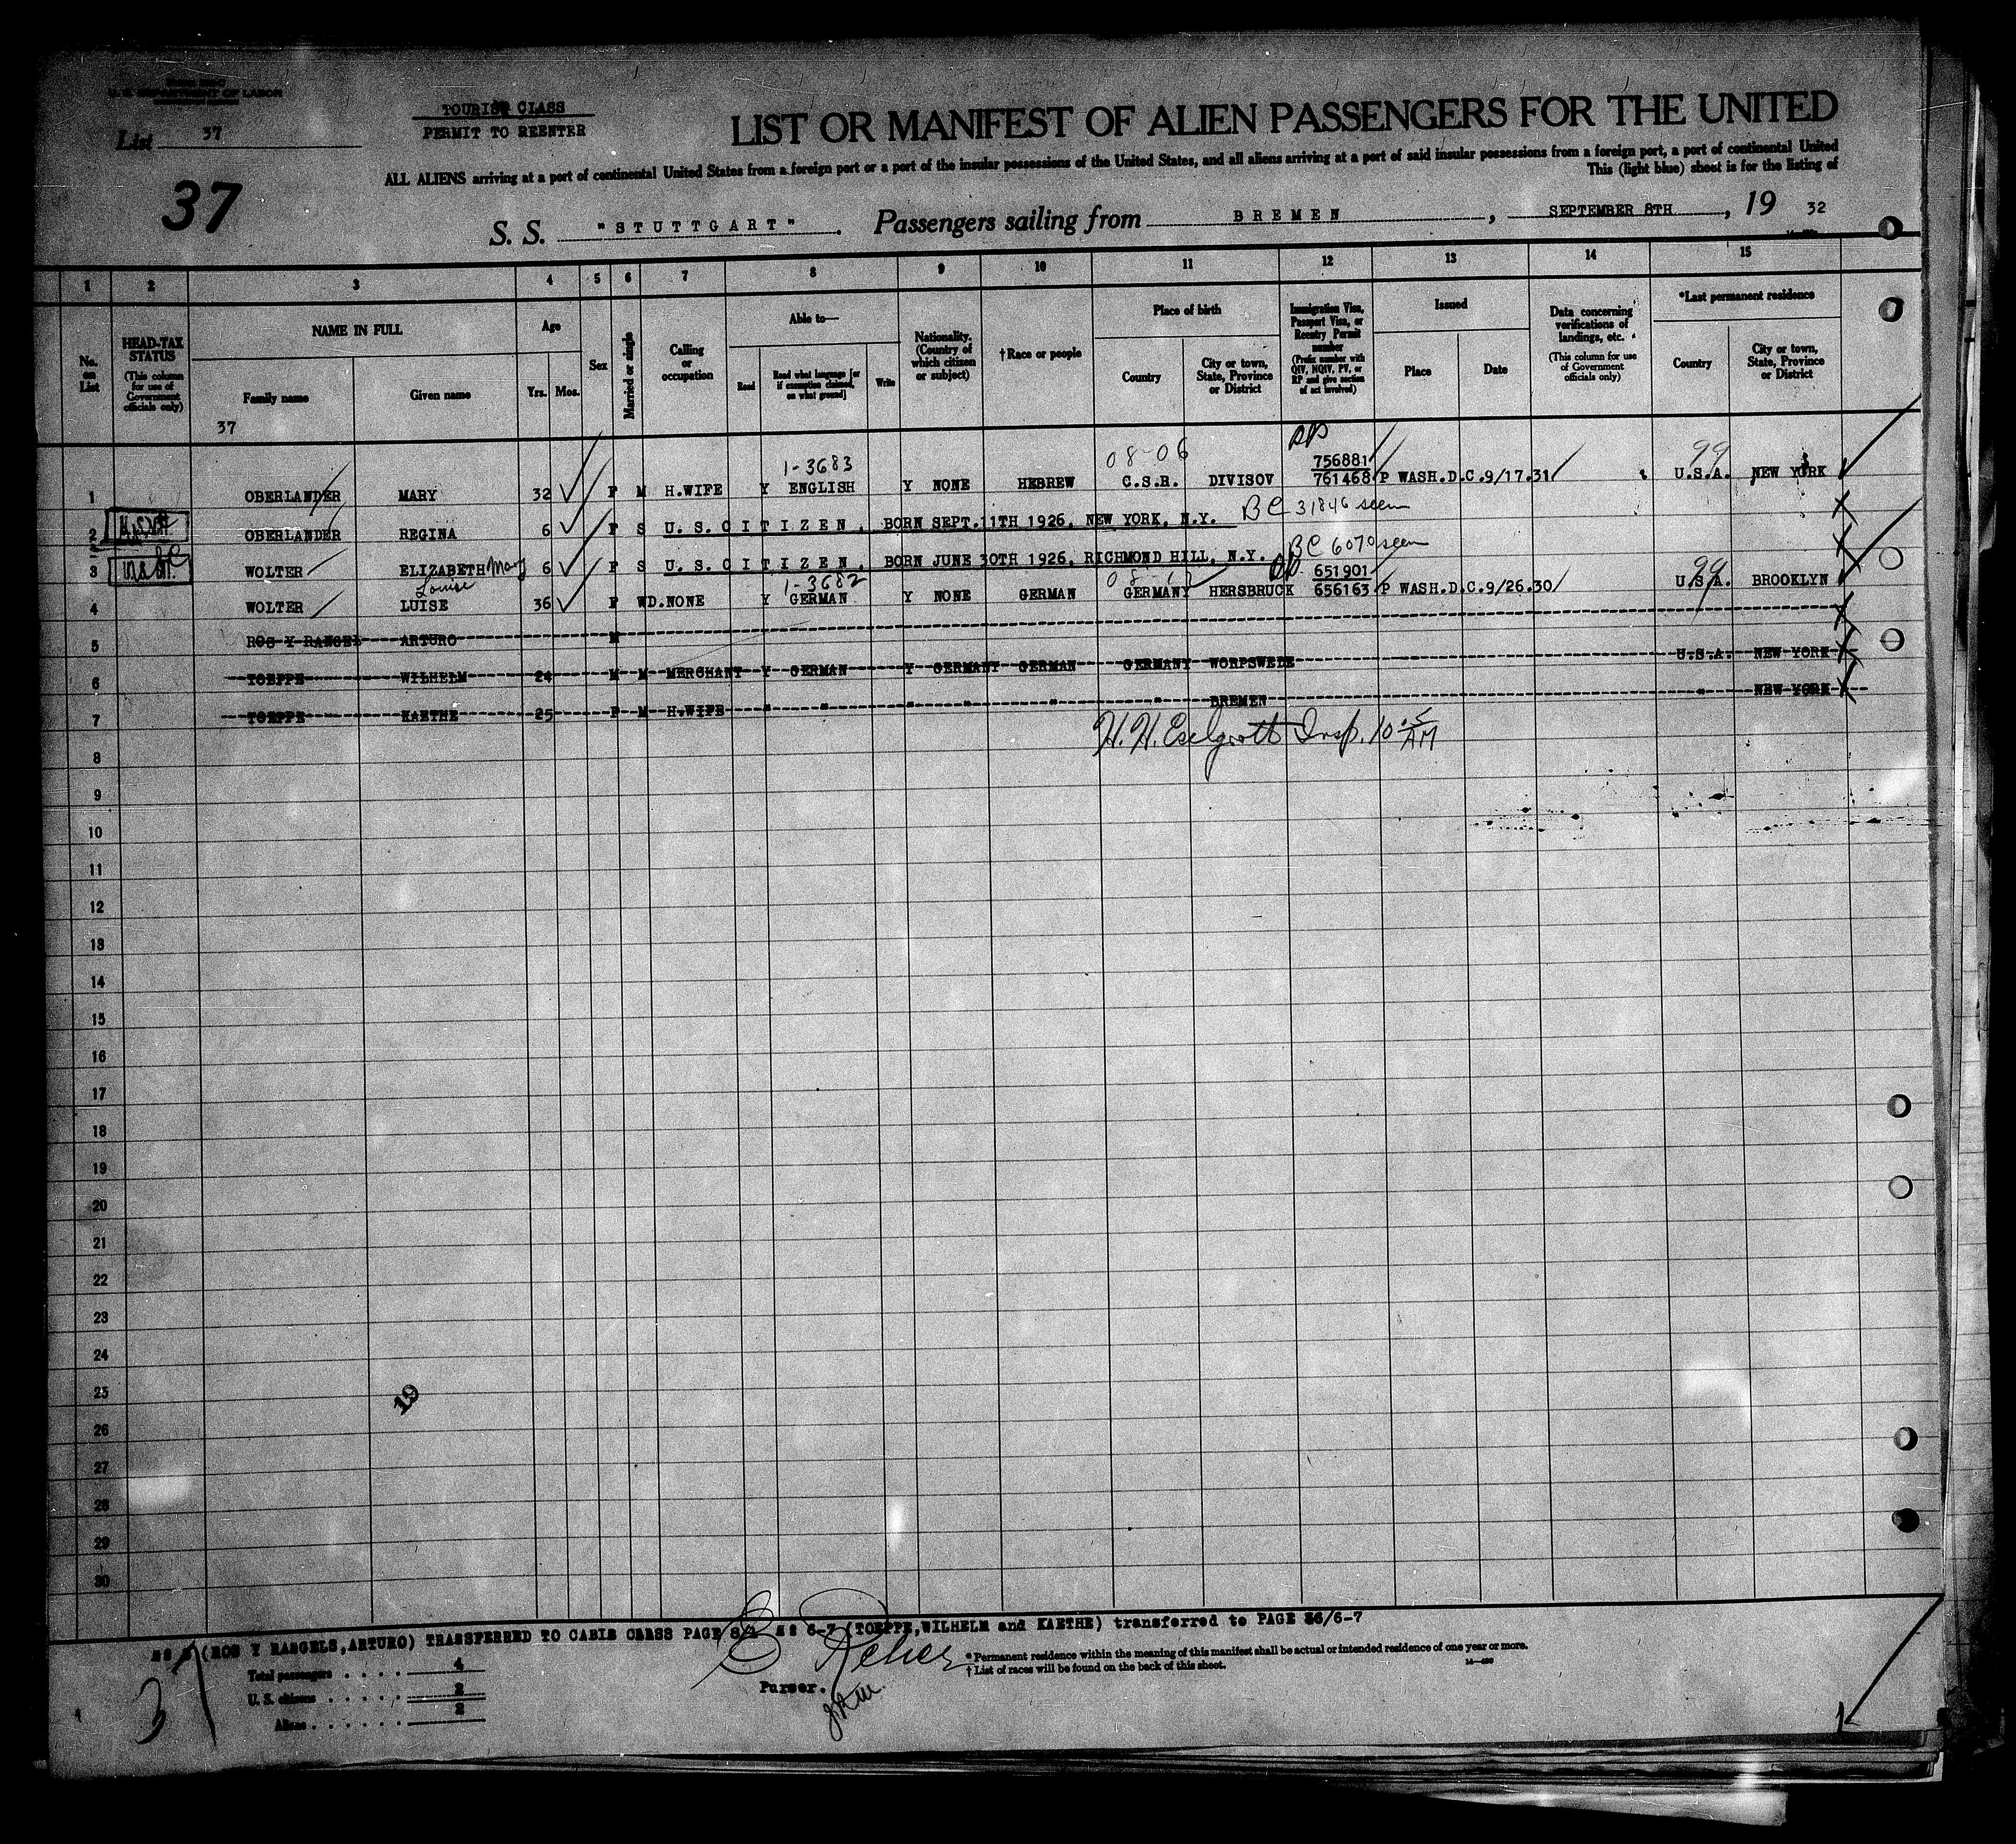 U. S. DEPARTMENT OF LABOR
TOURIST CLASS
PERMIT TO REENTER
List 37
37
LIST OR MANIFEST OF ALIEN PASSENGERS FOR THE UNITED
ALL ALIENS arriving at a port of continental United States from a foreign port or a port of the insular possessions of the United States, and all aliens arriving at a port of said insular possessions from a foreign port, a port of continental United
This (light blue) sheet is for the listing of
S. S. "STUTTGART". Passengers sailing from BREMEN, SEPTEMBER 8TH, 19 32
1 2 3 4 5 6 7 8 9 10 11 12 13 14 15
No. on List
HEAD-TAX STATUS
(This column for use of Government officials only)
NAME IN FULL
Family name
Given name
Age
Yrs. Mos.
Sex
Married or single
Calling or occupation
Able to—
Read
Read what language [or if exemption claimed, on what ground]
Write
Nationality. (Country of which citizen or subject)
†Race or people
Place of birth
Country
City or town, State, Province or District
Immigration Visa, Passport Visa, or Reentry Permit number
(Prefix number with QIV, NQIV, PV, or RP and give section of act involved)
Issued
Place
Date
Data concerning verifications of landings, etc.
(This column for use of Government officials only)
*Last permanent residence
Country
City or town, State, Province or District
37
1-3683 08-06 RP 756881 99
1 OBERLANDER MARY 32 F M H.WIFE Y ENGLISH Y NONE HEBREW C.S.R. DIVISOV 761468 P WASH.D.C.9/17.31 U.S.A. NEW YORK
2 OBERLANDER REGINA 6 F S U.S.CITIZEN. BORN SEPT.11TH 1926, NEW YORK, N.Y. BC 31846 seen
3 USBC WOLTER ELIZABETH Mary 6 F S U.S.CITIZEN. BORN JUNE 30TH 1926, RICHMOND HILL, N.Y. BC 6070 seen
Louise 1-3682 RP 651901 99
4 WOLTER LUISE 36 F WD. NONE Y GERMAN Y NONE GERMAN GERMANY HERSBRUCK 656163 P WASH.D.C.9/26.30 U.S.A. BROOKLYN
5 ROS Y RANGEL ARTURO M
6 TOEPPE WILHELM 24 M M MERCHANT Y GERMAN Y GERMANY GERMAN GERMANY WORPSWEDE U.S.A. NEW YORK
7 TOEPPE KAETHE 25 F M H.WIFE " " " " " " BREMEN " NEW YORK
H. H. Insp. 10 AM
8
9
10
11
12
13
14
15
16
17
18
19
20
21
22
23
24
25
19
26
27
28
29
30
(ROS Y RANGELS,ARTURO) TRANSFERRED TO CABIN CLASS PAGE No 6-7 (TOEPPE,WILHELM and KAETHE) transferred to PAGE 36/6-7
Total passengers 4
U. S. citizens 2
Aliens 2
Purser.
*Permanent residence within the meaning of this manifest shall be actual or intended residence of one year or more.
†List of races will be found on the back of this sheet.